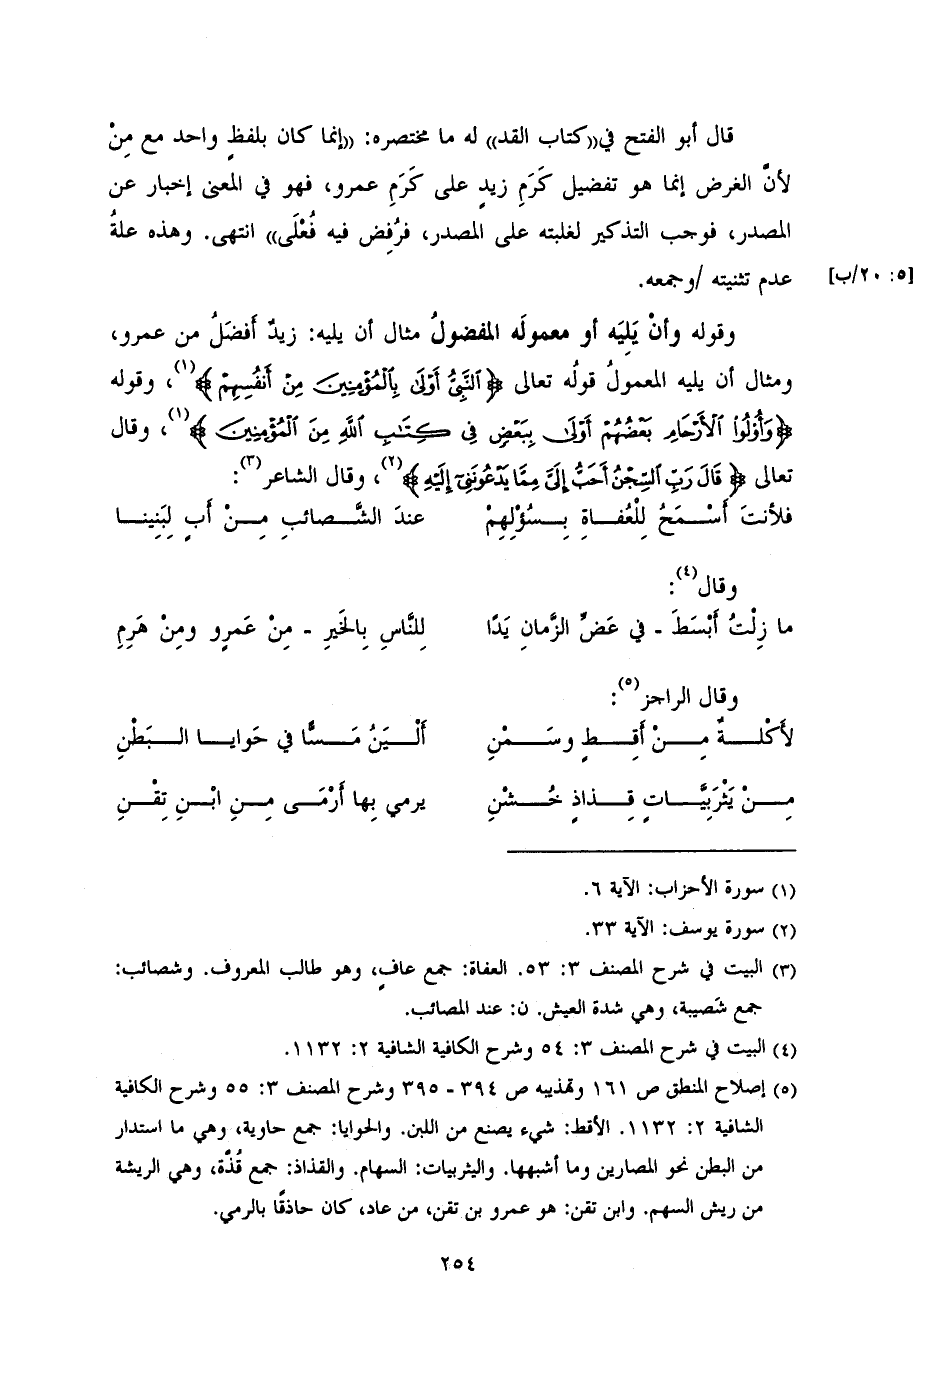 قال أبو الفتح في «كتاب القد» له ما مختصره: «إنما كان بلفظٍ واحد مع مِنْ
لأنَّ الغرض إنما هو تفضيل كَرَمِ زيدٍ على كَرَمِ عمرو، فهو في المعنى إخبار عن
المصدر، فوجب التذكير لغلبته على المصدر، فرُفِض فيه فُعْلَى» انتهى. وهذه علةُ
عدم تثنيته /وجمعه. [٥: ٢٠/ب]
وقوله وأنْ يَلِيَه أو معمولَه المفضولُ مثال أن يليه: زيدٌ أَفضَلُ من عمرو،
ومثال أن يليه المعمولُ قولُه تعالى ﴿ٱلنَّبِيُّ أَوْلَىٰ بِٱلْمُؤْمِنِينَ مِنْ أَنفُسِهِمْ﴾(١)، وقوله
﴿وَأُوْلُواْ ٱلْأَرْحَامِ بَعْضُهُمْ أَوْلَىٰ بِبَعْضٍ فِى كِتَٰبِ ٱللَّهِ مِنَ ٱلْمُؤْمِنِينَ﴾(١)، وقال
تعالى ﴿قَالَ رَبِّ ٱلسِّجْنُ أَحَبُّ إِلَىَّ مِمَّا يَدْعُونَنِىٓ إِلَيْهِ﴾(٢)، وقال الشاعر(٣):
فلأنتَ أَسْمَحُ لِلْعُفاةِ بِسُؤْلِهِمْ عندَ الشَّصائبِ مِنْ أَبٍ لِبَنِينا
وقال(٤):
ما زِلْتُ أَبْسَطَ - في عَضِّ الزَّمانِ يَدًا لِلنَّاسِ بِالخَيرِ - مِنْ عَمرٍو ومِنْ هَرِمِ
وقال الراجز(٥):
لأَكْلةٌ مِنْ أَقِطٍ وسَمْنِ أَلْيَنُ مَسًّا في حَوايا البَطْنِ
مِنْ يَثْرَبِيَّاتٍ قِذاذٍ خُشْنِ يرمي بِها أَرْمَى مِنِ ابْنِ تِقْنِ
(١) سورة الأحزاب: الآية ٦.
(٢) سورة يوسف: الآية ٣٣.
(٣) البيت في شرح المصنف ٣: ٥٣. العفاة: جمع عافٍ، وهو طالب المعروف. وشصائب:
جمع شَصيبة، وهي شدة العيش. ن: عند المصائب.
(٤) البيت في شرح المصنف ٣: ٥٤ وشرح الكافية الشافية ٢: ١١٣٢.
(٥) إصلاح المنطق ص ١٦١ وتهذيبه ص ٣٩٤ - ٣٩٥ وشرح المصنف ٣: ٥٥ وشرح الكافية
الشافية ٢: ١١٣٢. الأقط: شيء يصنع من اللبن. والحوايا: جمع حاوية، وهي ما استدار
من البطن نحو المصارين وما أشبهها. واليثربيات: السهام. والقذاذ: جمع قُذّة، وهي الريشة
من ريش السهم. وابن تقن: هو عمرو بن تقن، من عاد، كان حاذقًا بالرمي.
٢٥٤